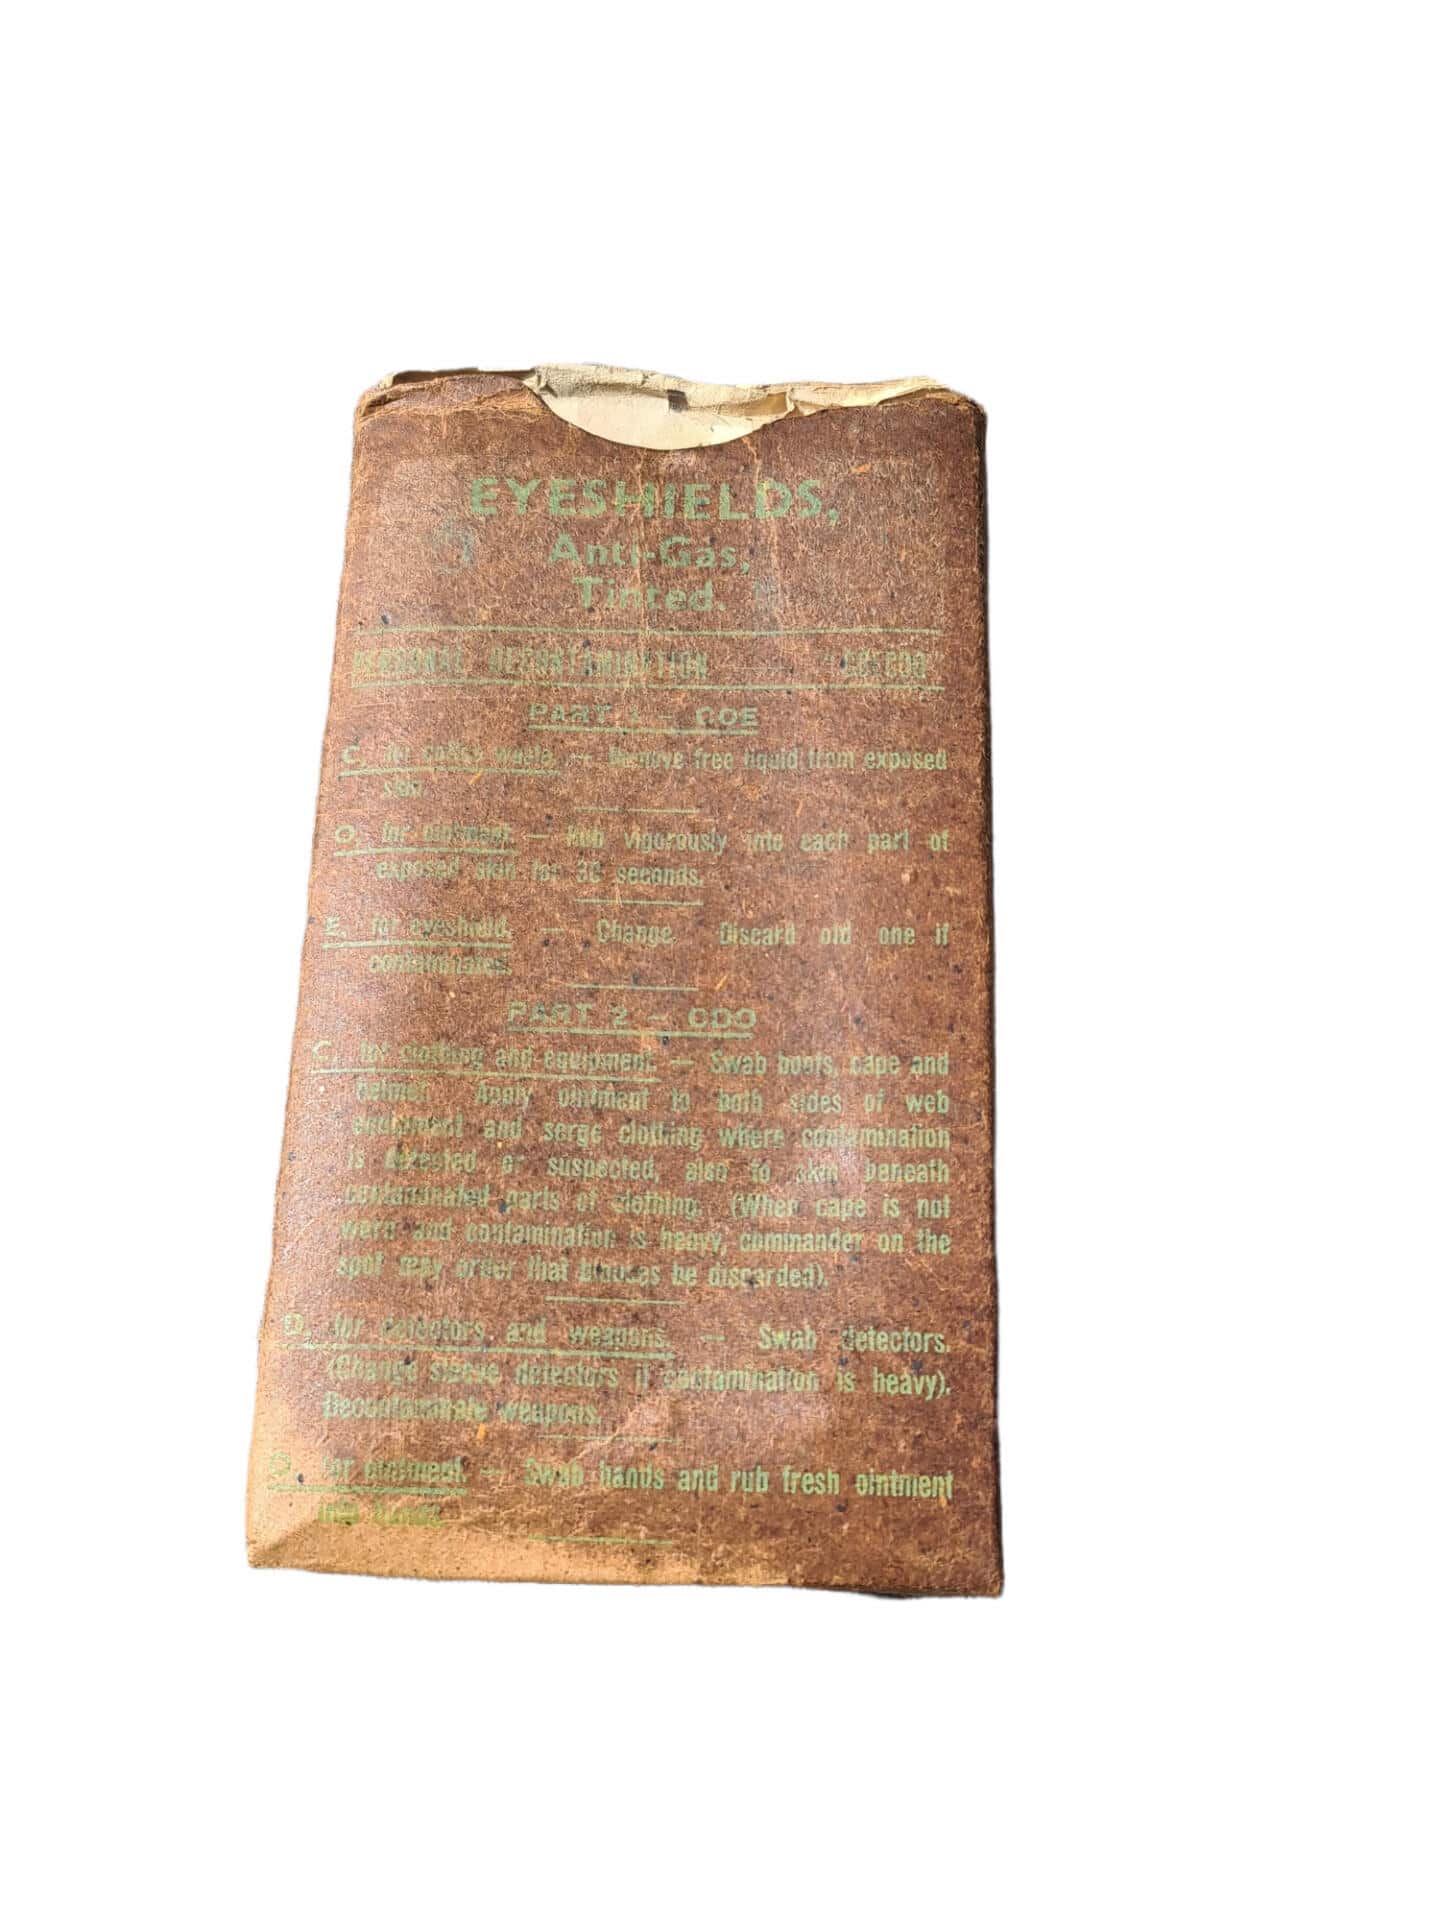 EYESHIELDS,
Anti-Gas,
Tinted.
PERSONAL DECONTAMINATION
PART 1 — COE
C. for cotton waste. — Remove free liquid from exposed
skin.
O. for ointment. — Rub vigorously into each part of
exposed skin for 30 seconds.
E. for eyeshield. — Change. Discard old one if
contaminated.
PART 2 — CDO
C. for clothing and equipment. — Swab boots, cape and
helmet. Apply ointment to both sides of web
equipment and serge clothing where contamination
is detected or suspected, also to skin beneath
contaminated parts of clothing. (When cape is not
worn and contamination is heavy, commander on the
spot may order that blouses be discarded).
D. for detectors and weapons. — Swab detectors.
(Change sleeve detectors if contamination is heavy).
Decontaminate weapons.
O. for ointment. — Swab hands and rub fresh ointment
into hands.